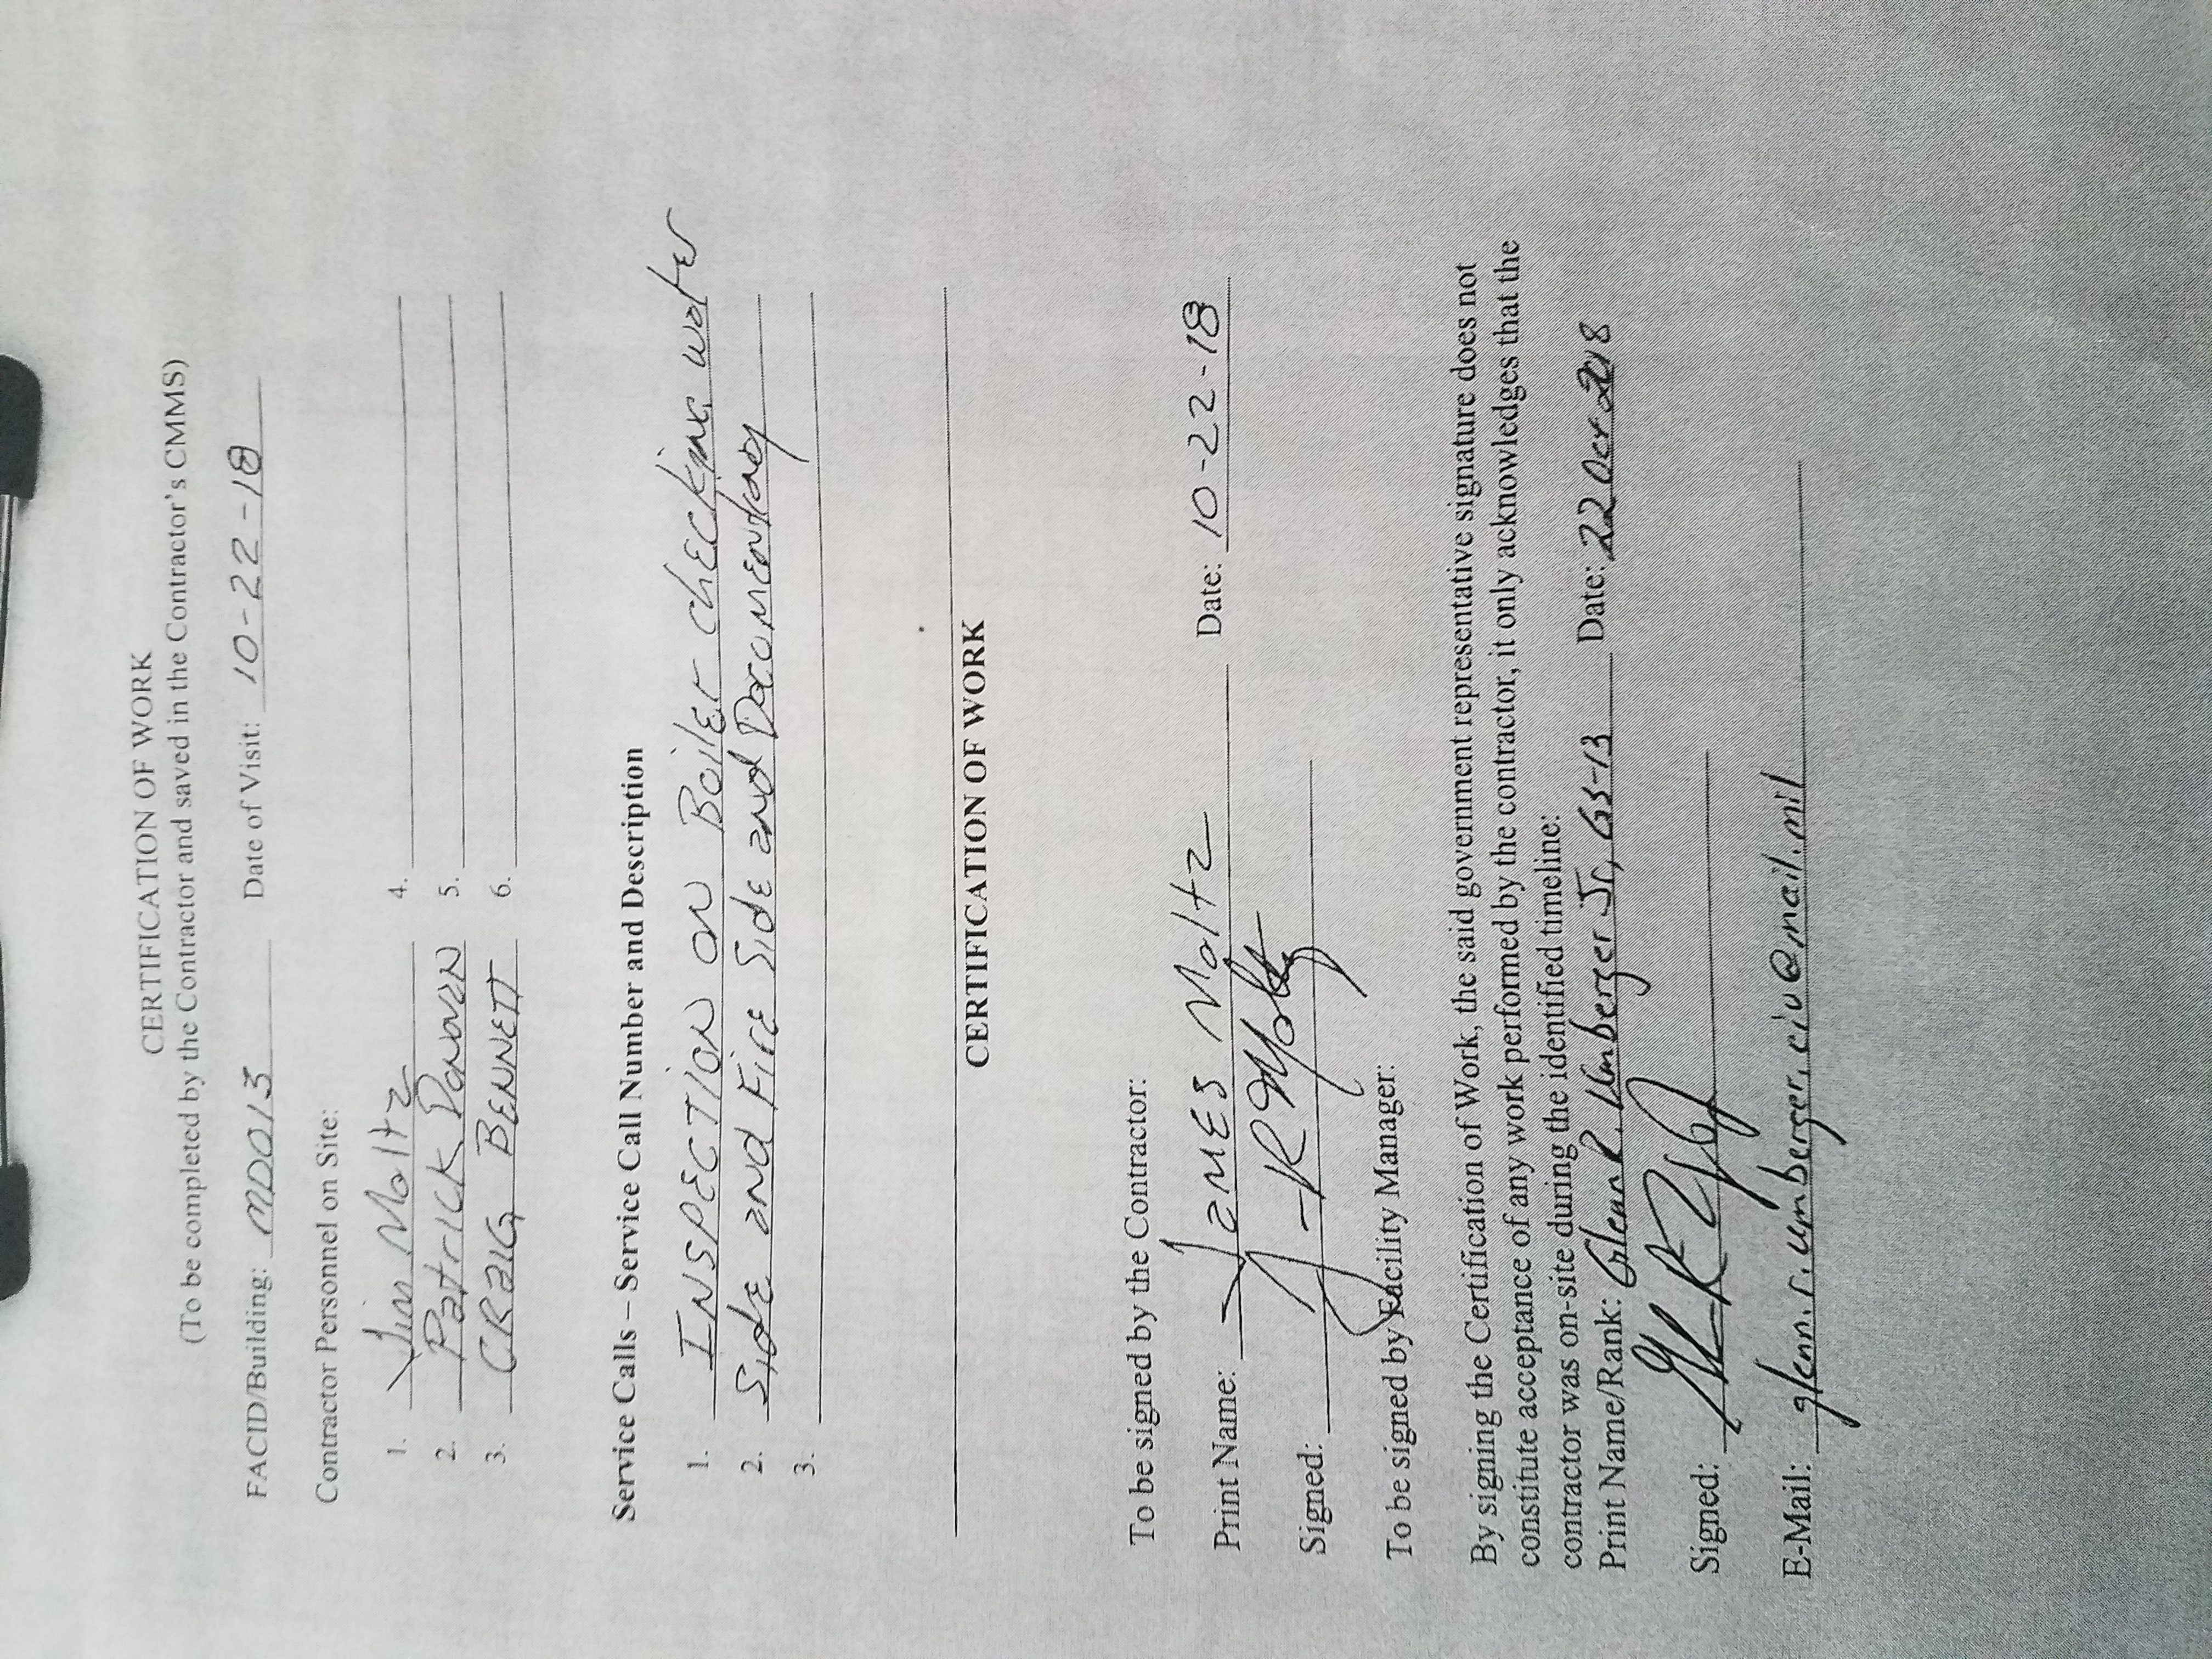 CERTIFICATION OF WORK
(To be completed by the Contractor and saved in the Contractor's CMMS)
FACID/Building: MD013 Date of Visit: 10-22-18
Contractor Personnel on Site:
1. Jim Moltz 4.
2. Patrick 5.
3. CRaig BENNETT 6.
Service Calls – Service Call Number and Description
1. INSPECTION ON Boiler checking water
2. Side and Fire Side and
3.
CERTIFICATION OF WORK
To be signed by the Contractor:
Print Name: James Moltz Date: 10-22-18
Signed:
To be signed by Facility Manager:
By signing the Certification of Work, the said government representative signature does not
constitute acceptance of any work performed by the contractor, it only acknowledges that the
contractor was on-site during the identified timeline:
Print Name/Rank: Glenn R. Umberger Jr, GS-13 Date: 22 Oct 2018
Signed:
E-Mail: glenn.r.umberger.civ@mail.mil